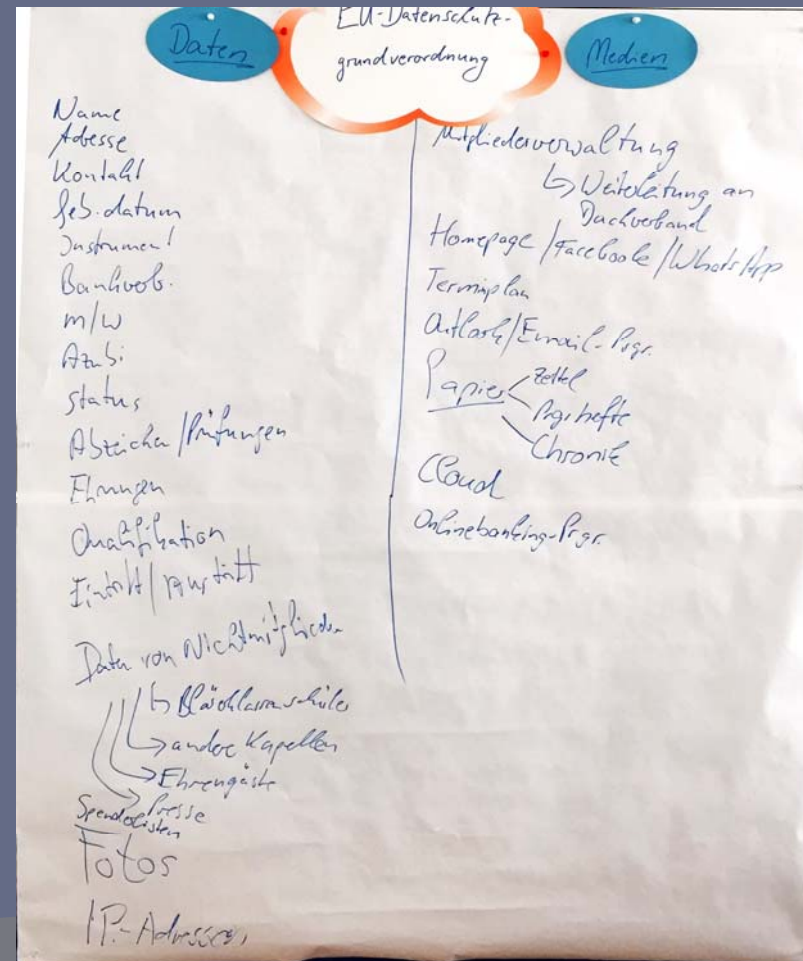 Daten
EU-Datenschutz-
grundverordnung
Medien
Name
Adresse
Kontakt
Geb.datum
Instrument
Bankverb.
m/w
Azubi
Status
Abzeichen/Prüfungen
Ehrungen
Qualifikation
Eintritt/Austritt
Daten von Nichtmitglieder
↳ Bläserklassenschüler
→ andere Kapellen
→ Ehrengäste
Presse
Spenderlisten
Fotos
IP-Adressen
Mitgliederverwaltung
↳ Weiterleitung an
Dachverband
Homepage/Facebook/WhatsApp
Terminplan
Outlook/Email-Prgr.
Papier
Zettel
Prgr.hefte
Chronik
Cloud
Onlinebanking-Prgr.